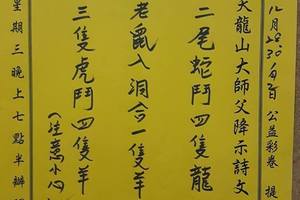 八月28.30 有百 公益彩卷 提
天龍山大師父降示詩文
二尾蛇鬥四隻龍
老鼠入洞合一隻羊
三隻虎鬥四隻羊
(注意小心
星期三晚上七點半辦